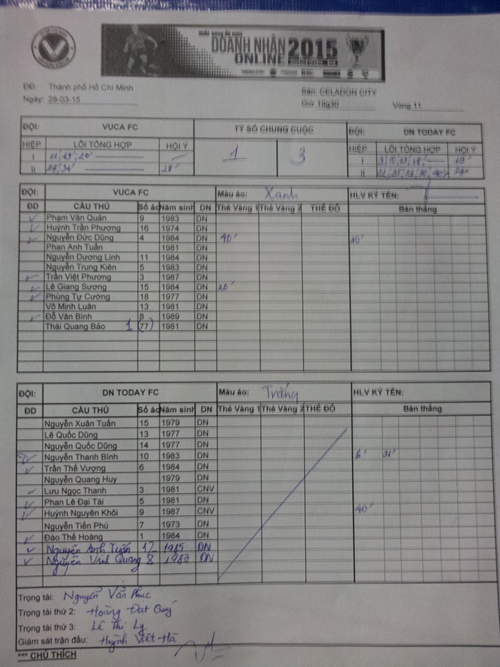 DOANH NHÂN 2015
ONLINE
ĐĐ: Thành phố Hồ Chí Minh Sân: CELADON CITY
Ngày: 28-03-15 Giờ 18g30 Vòng 11
ĐỘI: VUCA FC TỶ SỐ CHUNG CUỘC ĐỘI: DN TODAY FC
HIỆP LỖI TỔNG HỢP HỘI Ý 1 3 HIỆP LỖI TỔNG HỢP HỘI Ý
I I
II 28' II
ĐỘI: VUCA FC Màu áo: Xanh HLV KÝ TÊN:
ĐD CẦU THỦ Số áo Năm sinh DN Thẻ Vàng 1 Thẻ Vàng 2 THẺ ĐỎ Bàn thắng
Phạm Văn Quân 9 1983 DN
Huỳnh Trần Phương 16 1974 DN
Nguyễn Đức Dũng 4 1984 DN 40'
Phan Anh Tuấn 1981 DN
Nguyễn Dương Linh 11 1984 DN
Nguyễn Trung Kiên 5 1983 DN
Trần Việt Phương 3 1987 DN
Lê Giang Sương 15 1984 DN
Phùng Tự Cường 18 1977 DN
Võ Minh Luân 13 1981 DN
Đỗ Văn Bình 8 1989 DN
Thái Quang Bảo 1 (77) 1981 DN
ĐỘI: DN TODAY FC Màu áo: Trắng HLV KÝ TÊN:
ĐD CẦU THỦ Số áo Năm sinh DN Thẻ Vàng 1 Thẻ Vàng 2 THẺ ĐỎ Bàn thắng
Nguyễn Xuân Tuấn 15 1979 DN
Lê Quốc Dũng 13 1977 DN
Nguyễn Quốc Dũng 14 1977 DN
Nguyễn Thanh Bình 10 1983 DN
Trần Thế Vượng 6 1984 DN
Nguyễn Quang Huy 1979 DN
Lưu Ngọc Thanh 3 1981 CNV
Phan Lê Đại Tài 5 1981 DN
Huỳnh Nguyên Khôi 9 1987 CNV 40'
Nguyễn Tiến Phú 7 1973 DN
Đào Thế Hoàng 1 1984 DN
Nguyễn Anh Tuấn 17 1985 DN
Nguyễn Vinh Quang 8 DN
Trọng tài: Nguyễn Văn Phúc
Trọng tài thứ 2: Hoàng Đạt Quý
Trọng tài thứ 3: Lê Thi Ly
Giám sát trận đấu: Huỳnh Viết Hà
*** CHÚ THÍCH